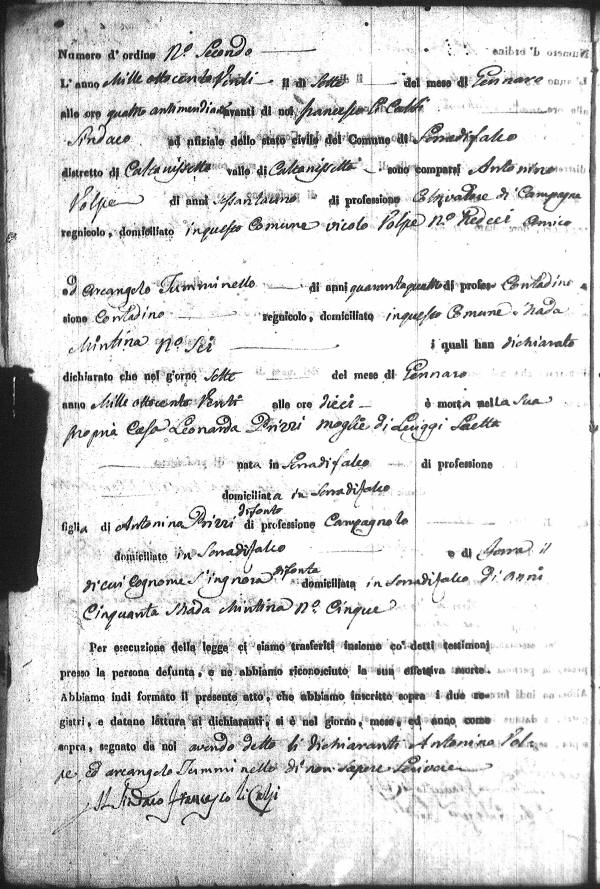 Numero d'ordine N.º Secondo
L'anno Mille ottocento Venti il dì Sette del mese di Gennaro
alle ore quattro antimeridiane avanti di noi Francesco Li Calsi
Sindaco ed ufiziale dello stato civile del Comune di Serradifalco
distretto di Caltanissetta valle di Caltanissetta sono comparsi Antonino
Volpe di anni di professione di Campagna
regnicolo, domiciliato in questo Comune vicolo Volpe N.º
ed Arcangelo Tumminello di anni quaranta quattro di profes- Contadino
sione Contadino regnicolo, domiciliato in questo Comune Strada
Mintina N.º Sei i quali han dichiarato
dichiarato che nel giorno Sette del mese di Gennaro
anno Mille ottocento Venti alle ore dieci è morta nella Sua
propria Casa Leonarda Prizzi moglie di Luiggi Saetta
nata in Serradifalco di professione
domiciliata in Serradifalco
figlia di Antonino Prizzi difonto di professione Campagnolo
domiciliato in Serradifalco e di il
di cui Cognome S'ingnora difonta domiciliata in Serradifalco di anni
Cinquanta Strada Mintina N.º Cinque
Per esecuzione della legge ci siamo trasferiti insieme co' detti testimonj
presso la persona defunta, e ne abbiamo riconosciuto la sua effettiva morte.
Abbiamo indi formato il presente atto, che abbiamo inscritto sopra i due re-
gistri, e datane lettura ai dichiaranti, si è nel giorno, mese, ed anno come
sopra, segnato da noi avendo detto li dichiaranti Antonino Vol-
pe, ed Arcangelo Tumminello di non sapere Scrivere
Il Sindaco Francesco Li Calsi